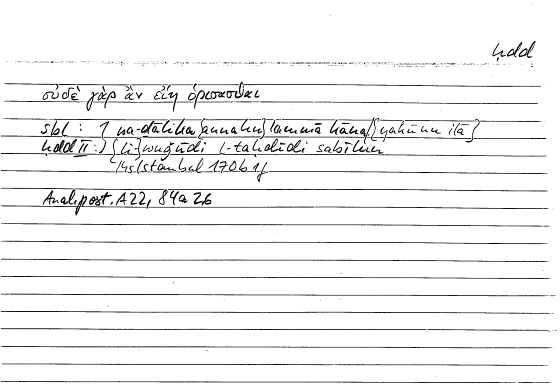 ḥdd
οὐδὲ γὰρ ἂν εἴη ὁρίσασθαι
sbl : } wa-ḏālika {annahu} lammā kāna/{yakūnu ilā}
ḥdd II : } {li-}wuǧūdi l-taḥdīdi sabīlun
Hs Istanbul 1706 1f
Anal. post. A 22, 84a 26